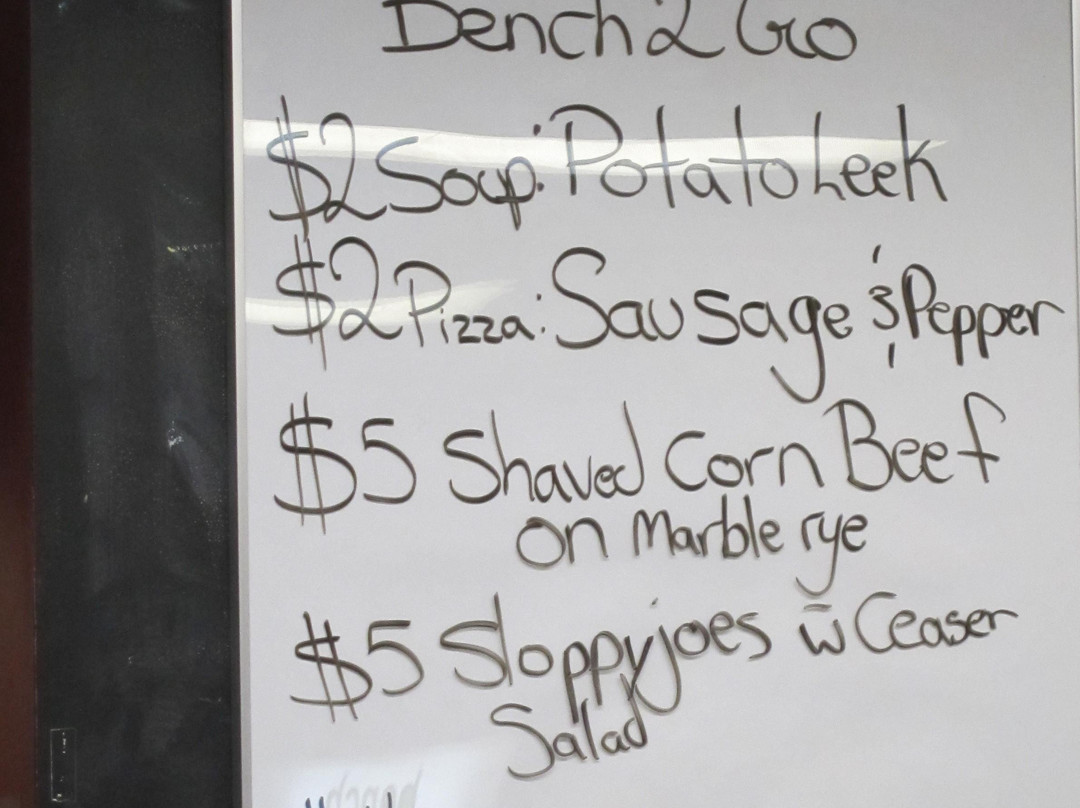 Bench 2 Go
$2 Soup: Potato Leek
$2 Pizza: Sausage & Pepper
$5 Shaved Corn Beef
on Marble rye
$5 Sloppy joes w Ceaser
Salad